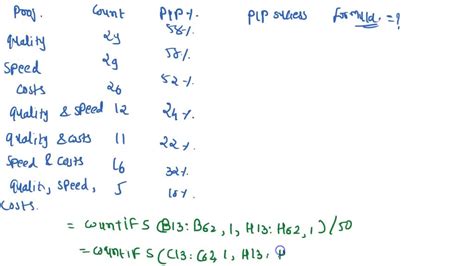 Proof. Count PIP%. PIP success formula =?
quality 29 58%
speed 29 58%
costs 26 52%
quality & speed 12 24%
quality & costs 11 22%
speed & costs 16 32%
quality, speed, costs. 5 10%
= countifs (B13:B62, 1, H13:H62, 1) /50
= countifs (C13:C62, 1, H13: